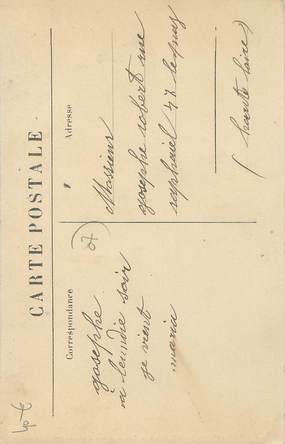 CARTE POSTALE
Correspondance
Adresse
josephe
à leindie soir
je vient
maria
Monsieur
josephe robert rue
raphaël 47 lepuy
(haute loire)
07